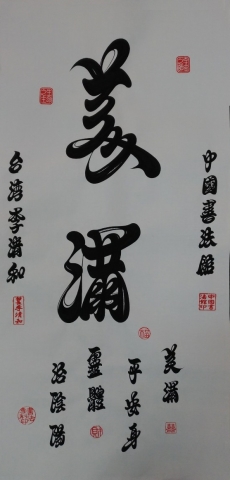 中國書法館
美滿
台湾李清和
美滿
平安身
靈體
陰陽